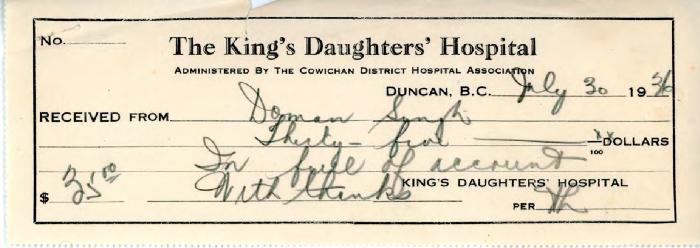 No.
The King's Daughters' Hospital
ADMINISTERED BY THE COWICHAN DISTRICT HOSPITAL ASSOCIATION
DUNCAN, B.C. July 30 1936
RECEIVED FROM Doman Singh
Thirty-five xx/100 DOLLARS
In full of account
With thanks KING'S DAUGHTERS' HOSPITAL
$ 35.00
PER